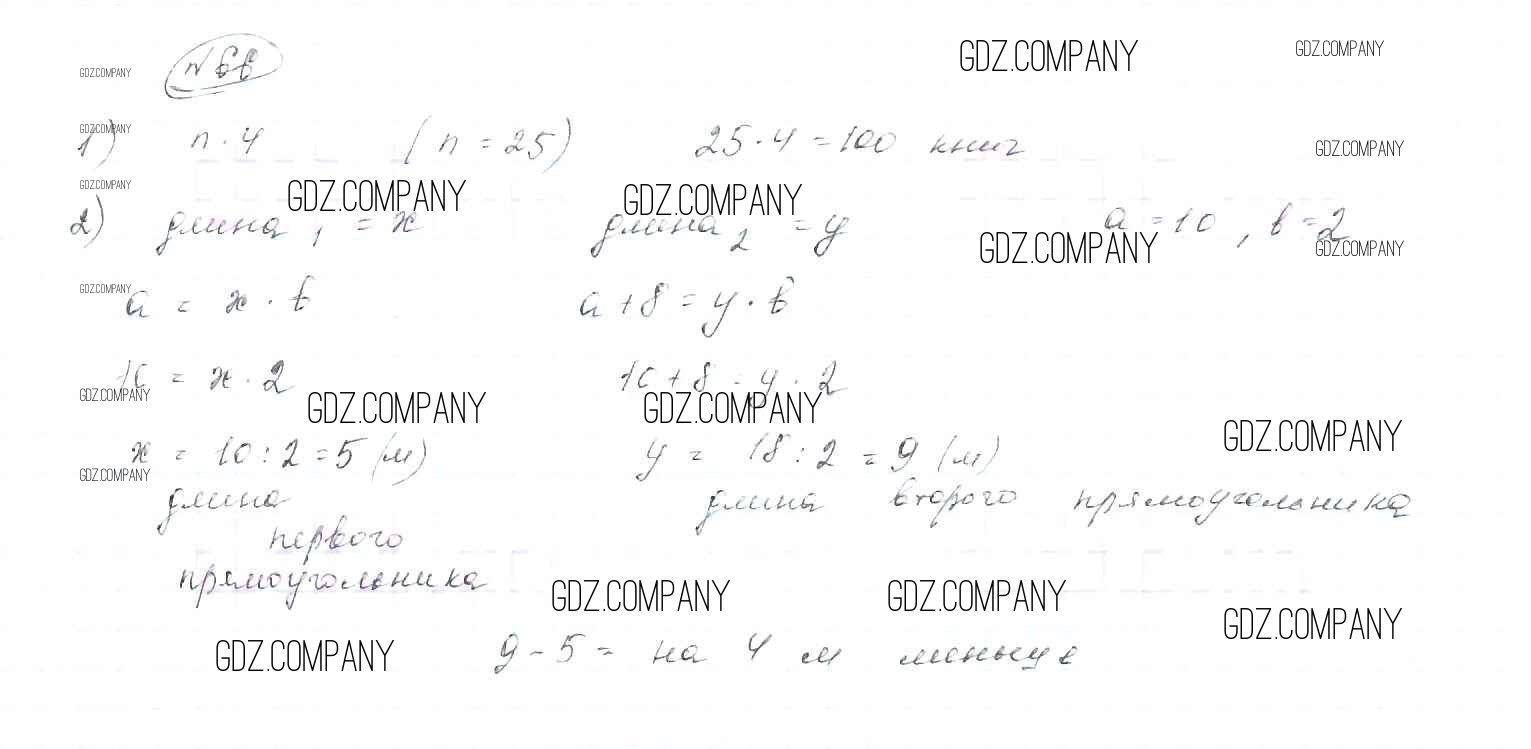 № 66
GDZ.COMPANY GDZ.COMPANY GDZ.COMPANY
1) n · 4 (n = 25) 25 · 4 = 100 книг
GDZ.COMPANY GDZ.COMPANY
GDZ.COMPANY GDZ.COMPANY GDZ.COMPANY
2) длина 1 = x длина 2 = y a = 10, b = 2
GDZ.COMPANY GDZ.COMPANY
GDZ.COMPANY
a = x · b a + 8 = y · b
10 = x · 2 10 + 8 = y · 2
GDZ.COMPANY GDZ.COMPANY GDZ.COMPANY
GDZ.COMPANY
x = 10 : 2 = 5 (м) y = 18 : 2 = 9 (м)
GDZ.COMPANY
длина длина второго прямоугольника
первого
прямоугольника
GDZ.COMPANY GDZ.COMPANY GDZ.COMPANY
9 - 5 = на 4 м меньше
GDZ.COMPANY